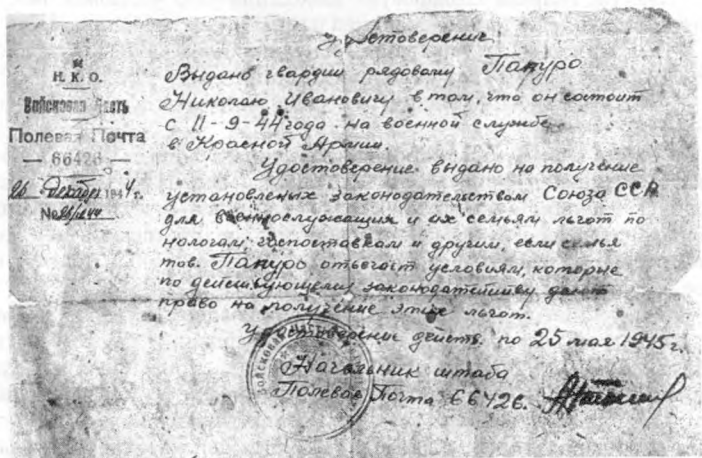 Удостоверение
Н. К. О.
Войсковая Часть
Полевая Почта
— 66426 —
26 Декабря 1944 г.
№
Выдано гвардии рядовому Папуро
Николаю Ивановичу в том, что он состоит
с 11-9-44 года на военной службе
в Красной Армии.
Удостоверение выдано на получение
установленых законодательством Союза ССР
для военнослужащих и их семьям льгот по
нологам, госпоставкам и другим, если семья
тов. Папуро отвечает условиям, которые
по действующему законодательству дают
право на получение этих льгот.
Удостоверение действ. по 25 мая 1945 г.
Начальник штаба
Полевая Почта 66426.
ВОЙСКОВАЯ ЧАСТЬ